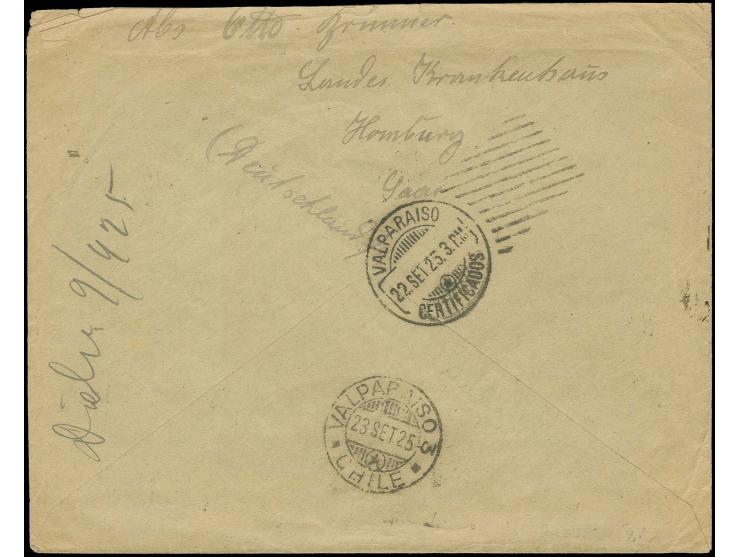 Abs Otto Brünner.
Landes Krankenhaus
Homburg
Saar
(Deutschland)
VALPARAISO
22.SET 25.3.P.M.
CERTIFICADOS
VALPARAISO 3
23 SET 25
CHILE
9/9 25